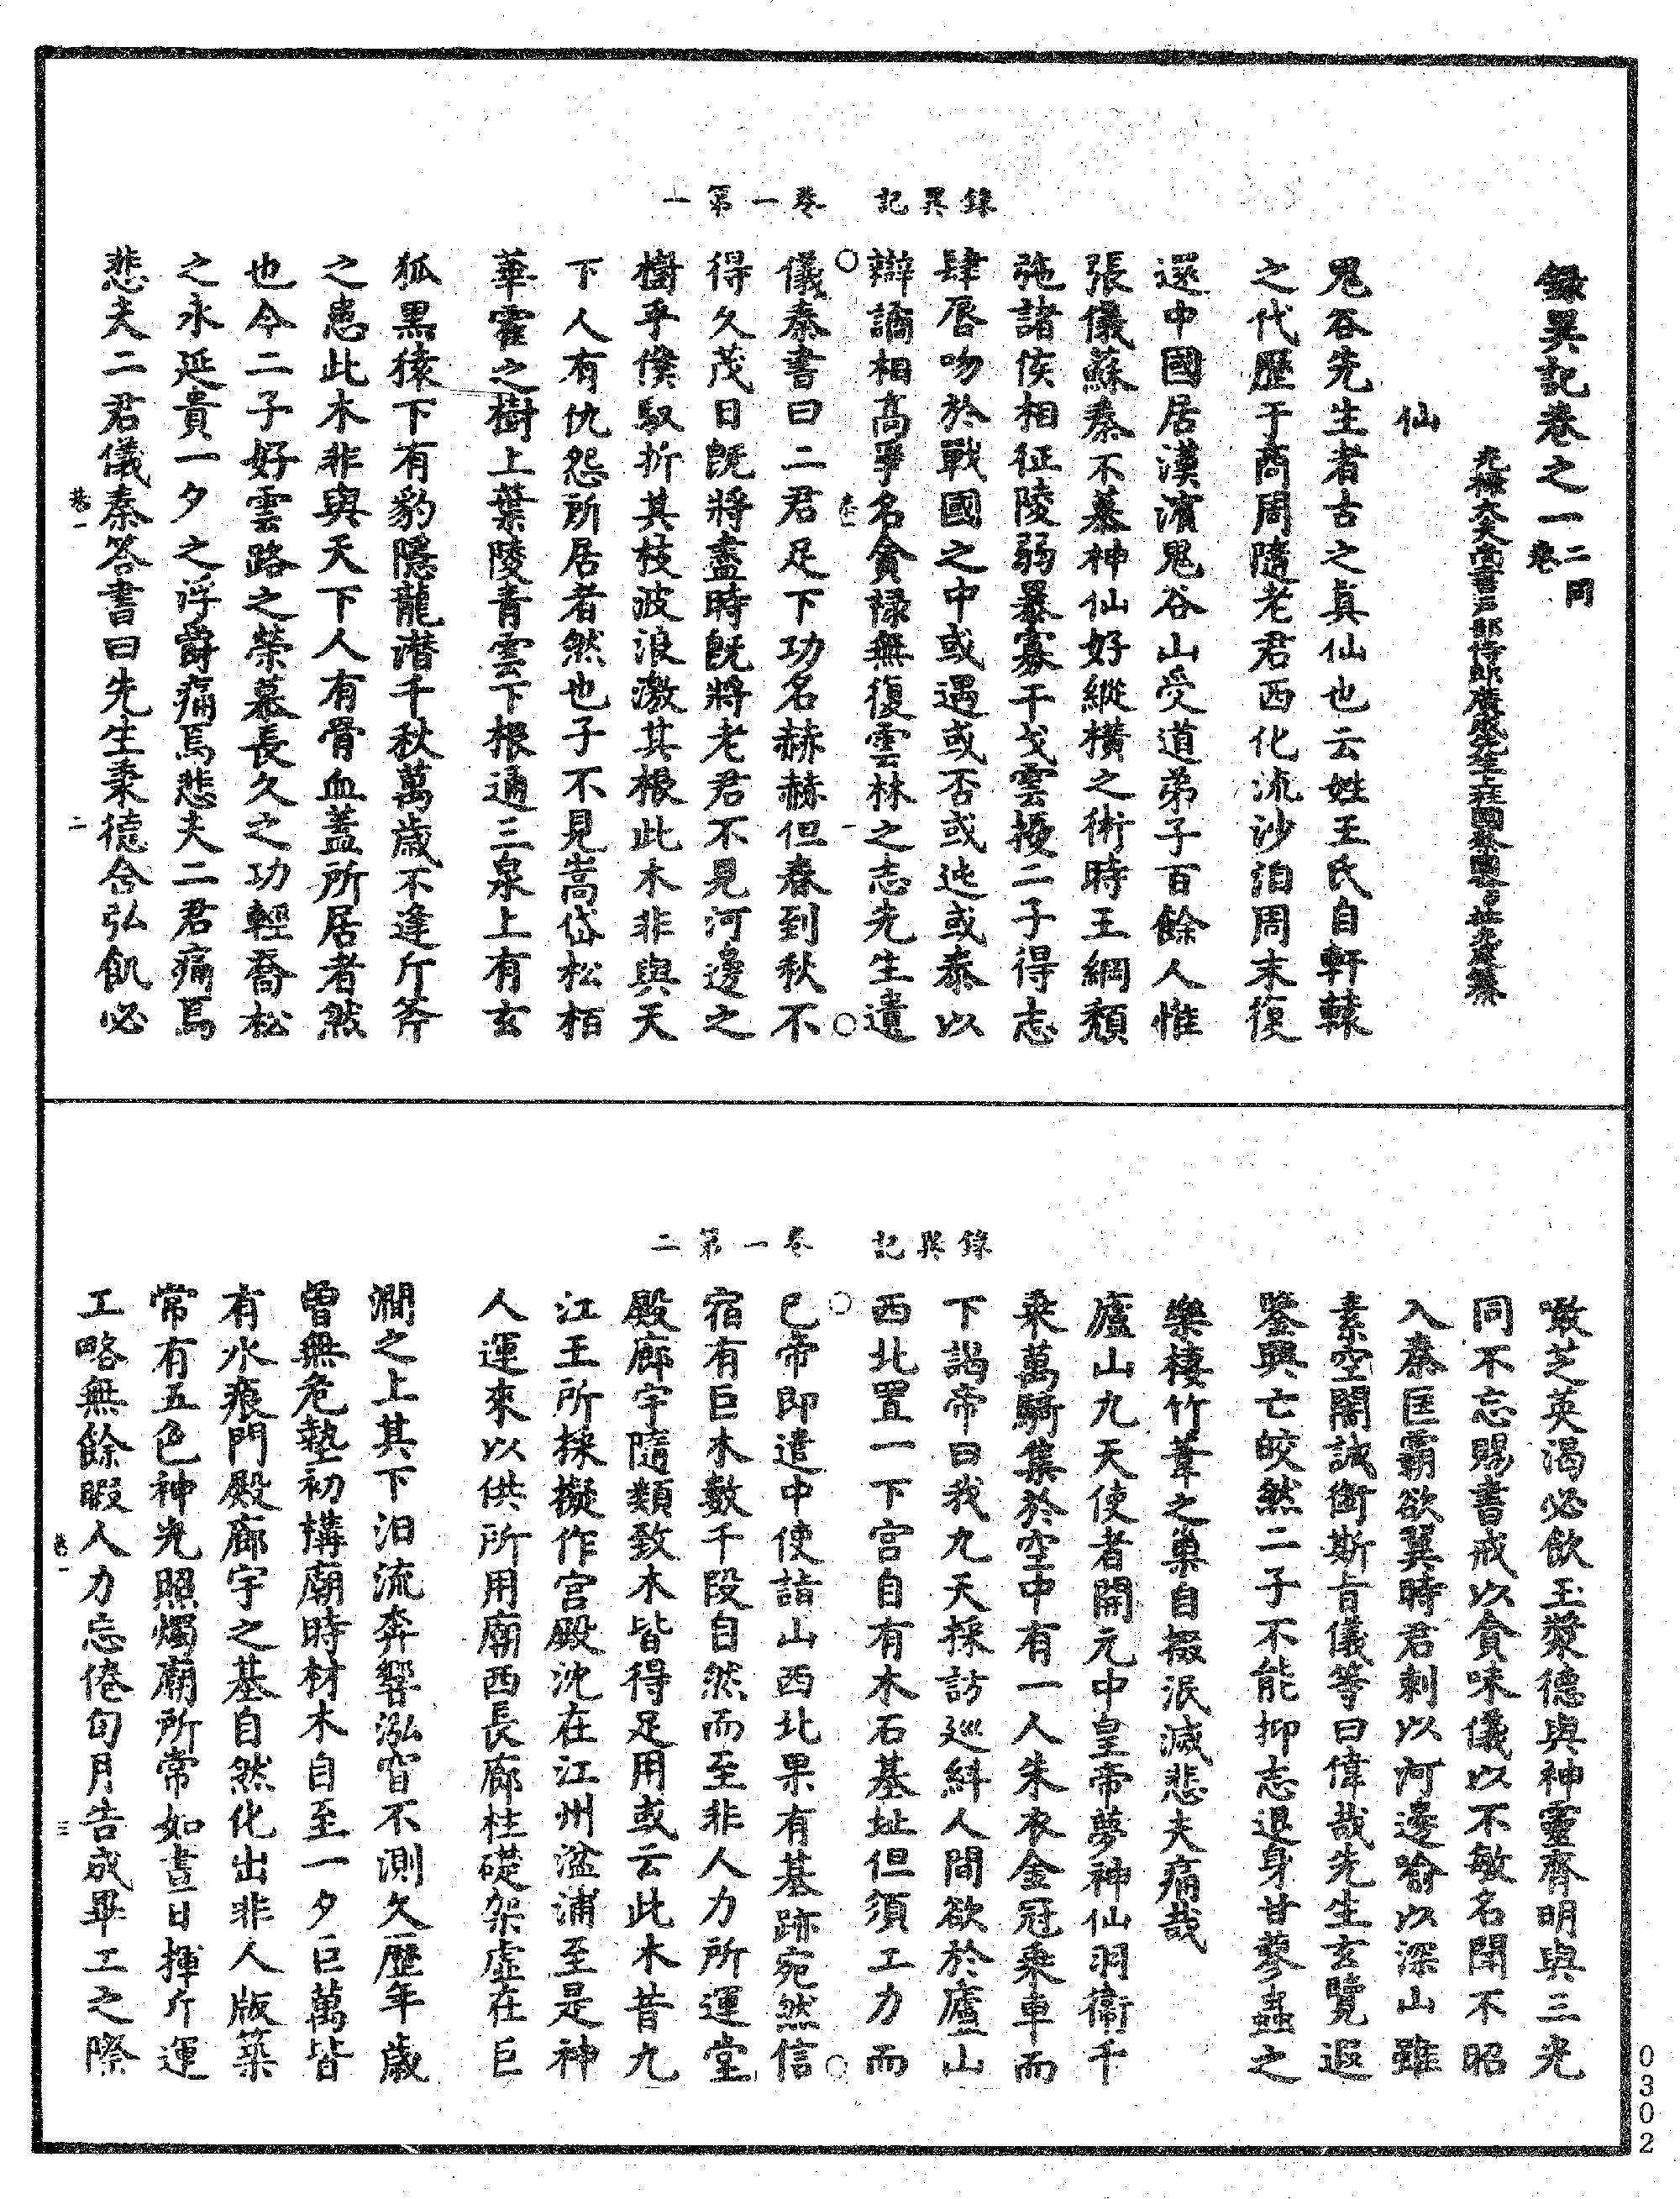 錄異記　卷一第一
錄異記卷之一　二卷同
光祿大夫尚書戶部侍郎廣成先生上柱國蔡國公杜光庭纂
仙
鬼谷先生者古之真仙也云姓王氏自軒轅
之代歷于商周隨老君西化流沙洎周末復
還中國居漢濱鬼谷山受道弟子百餘人惟
張儀蘇秦不慕神仙好縱橫之術時王綱頹
弛諸侯相征陵弱暴寡干戈雲擾二子得志
肆唇吻於戰國之中或遇或否或迍或泰以
辯譎相高爭名貪祿無復雲林之志先生遺
儀秦書曰二君足下功名赫赫但春到秋不
得久茂日旣將盡時旣將老君不見河邊之
樹乎僕馭折其枝波浪激其根此木非與天
下人有仇怨所居者然也子不見嵩岱松栢
華霍之樹上葉陵青雲下根通三泉上有玄
狐黑猿下有豹隱龍潛千秋萬歲不逢斤斧
之患此木非與天下人有骨血蓋所居者然
也今二子好雲路之榮慕長久之功輕喬松
之永延貴一夕之浮爵痛焉悲夫二君痛焉
悲夫二君儀秦答書曰先生秉德含弘飢必
卷一　二
錄異記　卷一第二
噉芝英渴必飲玉漿德與神靈齊明與三光
同不忘賜書戒以貪味儀以不敏名聞不昭
入秦匡霸欲翼時君刺以河邊喻以深山雖
素空闇誠銜斯旨儀等曰偉哉先生玄覽遐
鑒興亡皎然二子不能抑志退身甘蓼蟲之
樂棲竹葦之巢自掇泯滅悲夫痛哉
廬山九天使者開元中皇帝夢神仙羽衛千
乘萬騎集於空中有一人朱衣金冠乘車而
下謁帝曰我九天採訪巡糾人間欲於廬山
西北置一下宮自有木石基址但須工力而
已帝即遣中使詣山西北果有基跡宛然信
宿有巨木數千段自然而至非人力所運堂
殿廊宇隨類致木皆得足用或云此木昔九
江王所採擬作宮殿沈在江州湓浦至是神
人運來以供所用廟西長廊柱礎架虛在巨
澗之上其下汨流奔響泓窅不測久歷年歲
曾無危墊初構廟時材木自至一夕巨萬皆
有水痕門殿廊宇之基自然化出非人版築
常有五色神光照燭廟所常如晝日揮斤運
工略無餘暇人力忘倦旬月告成畢工之際
卷一　三
0302